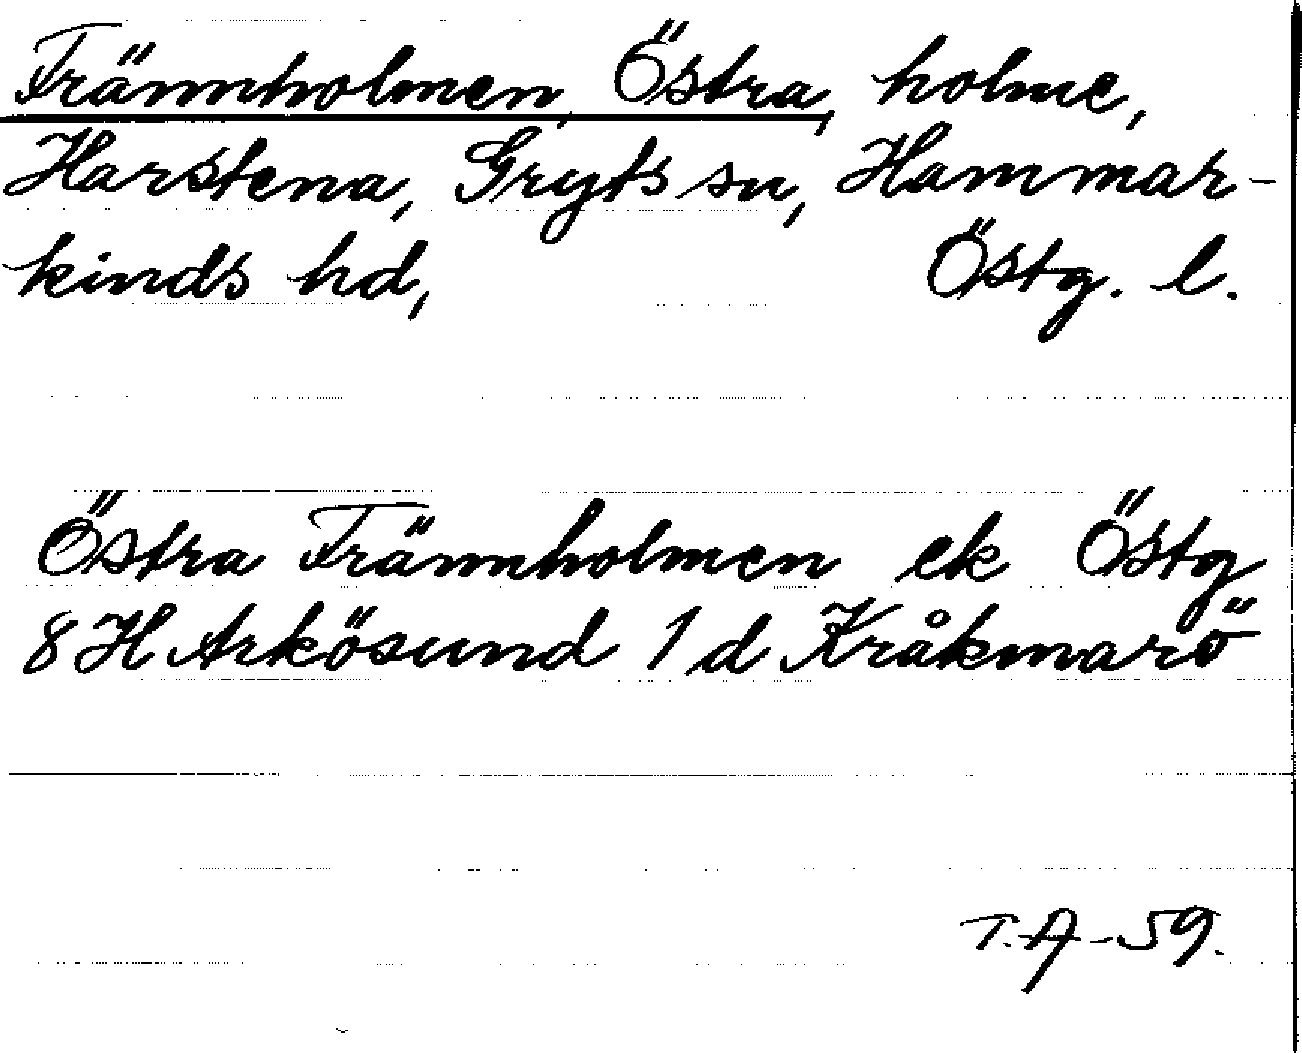 Trännholmen, Östra, holme,
Harstena, Gryts sn, Hammar-
kinds hd, Östg. l.
Östra Trännholmen ek Östg
8 H Arkösund 1 d Kråkmarö
T.A-59.